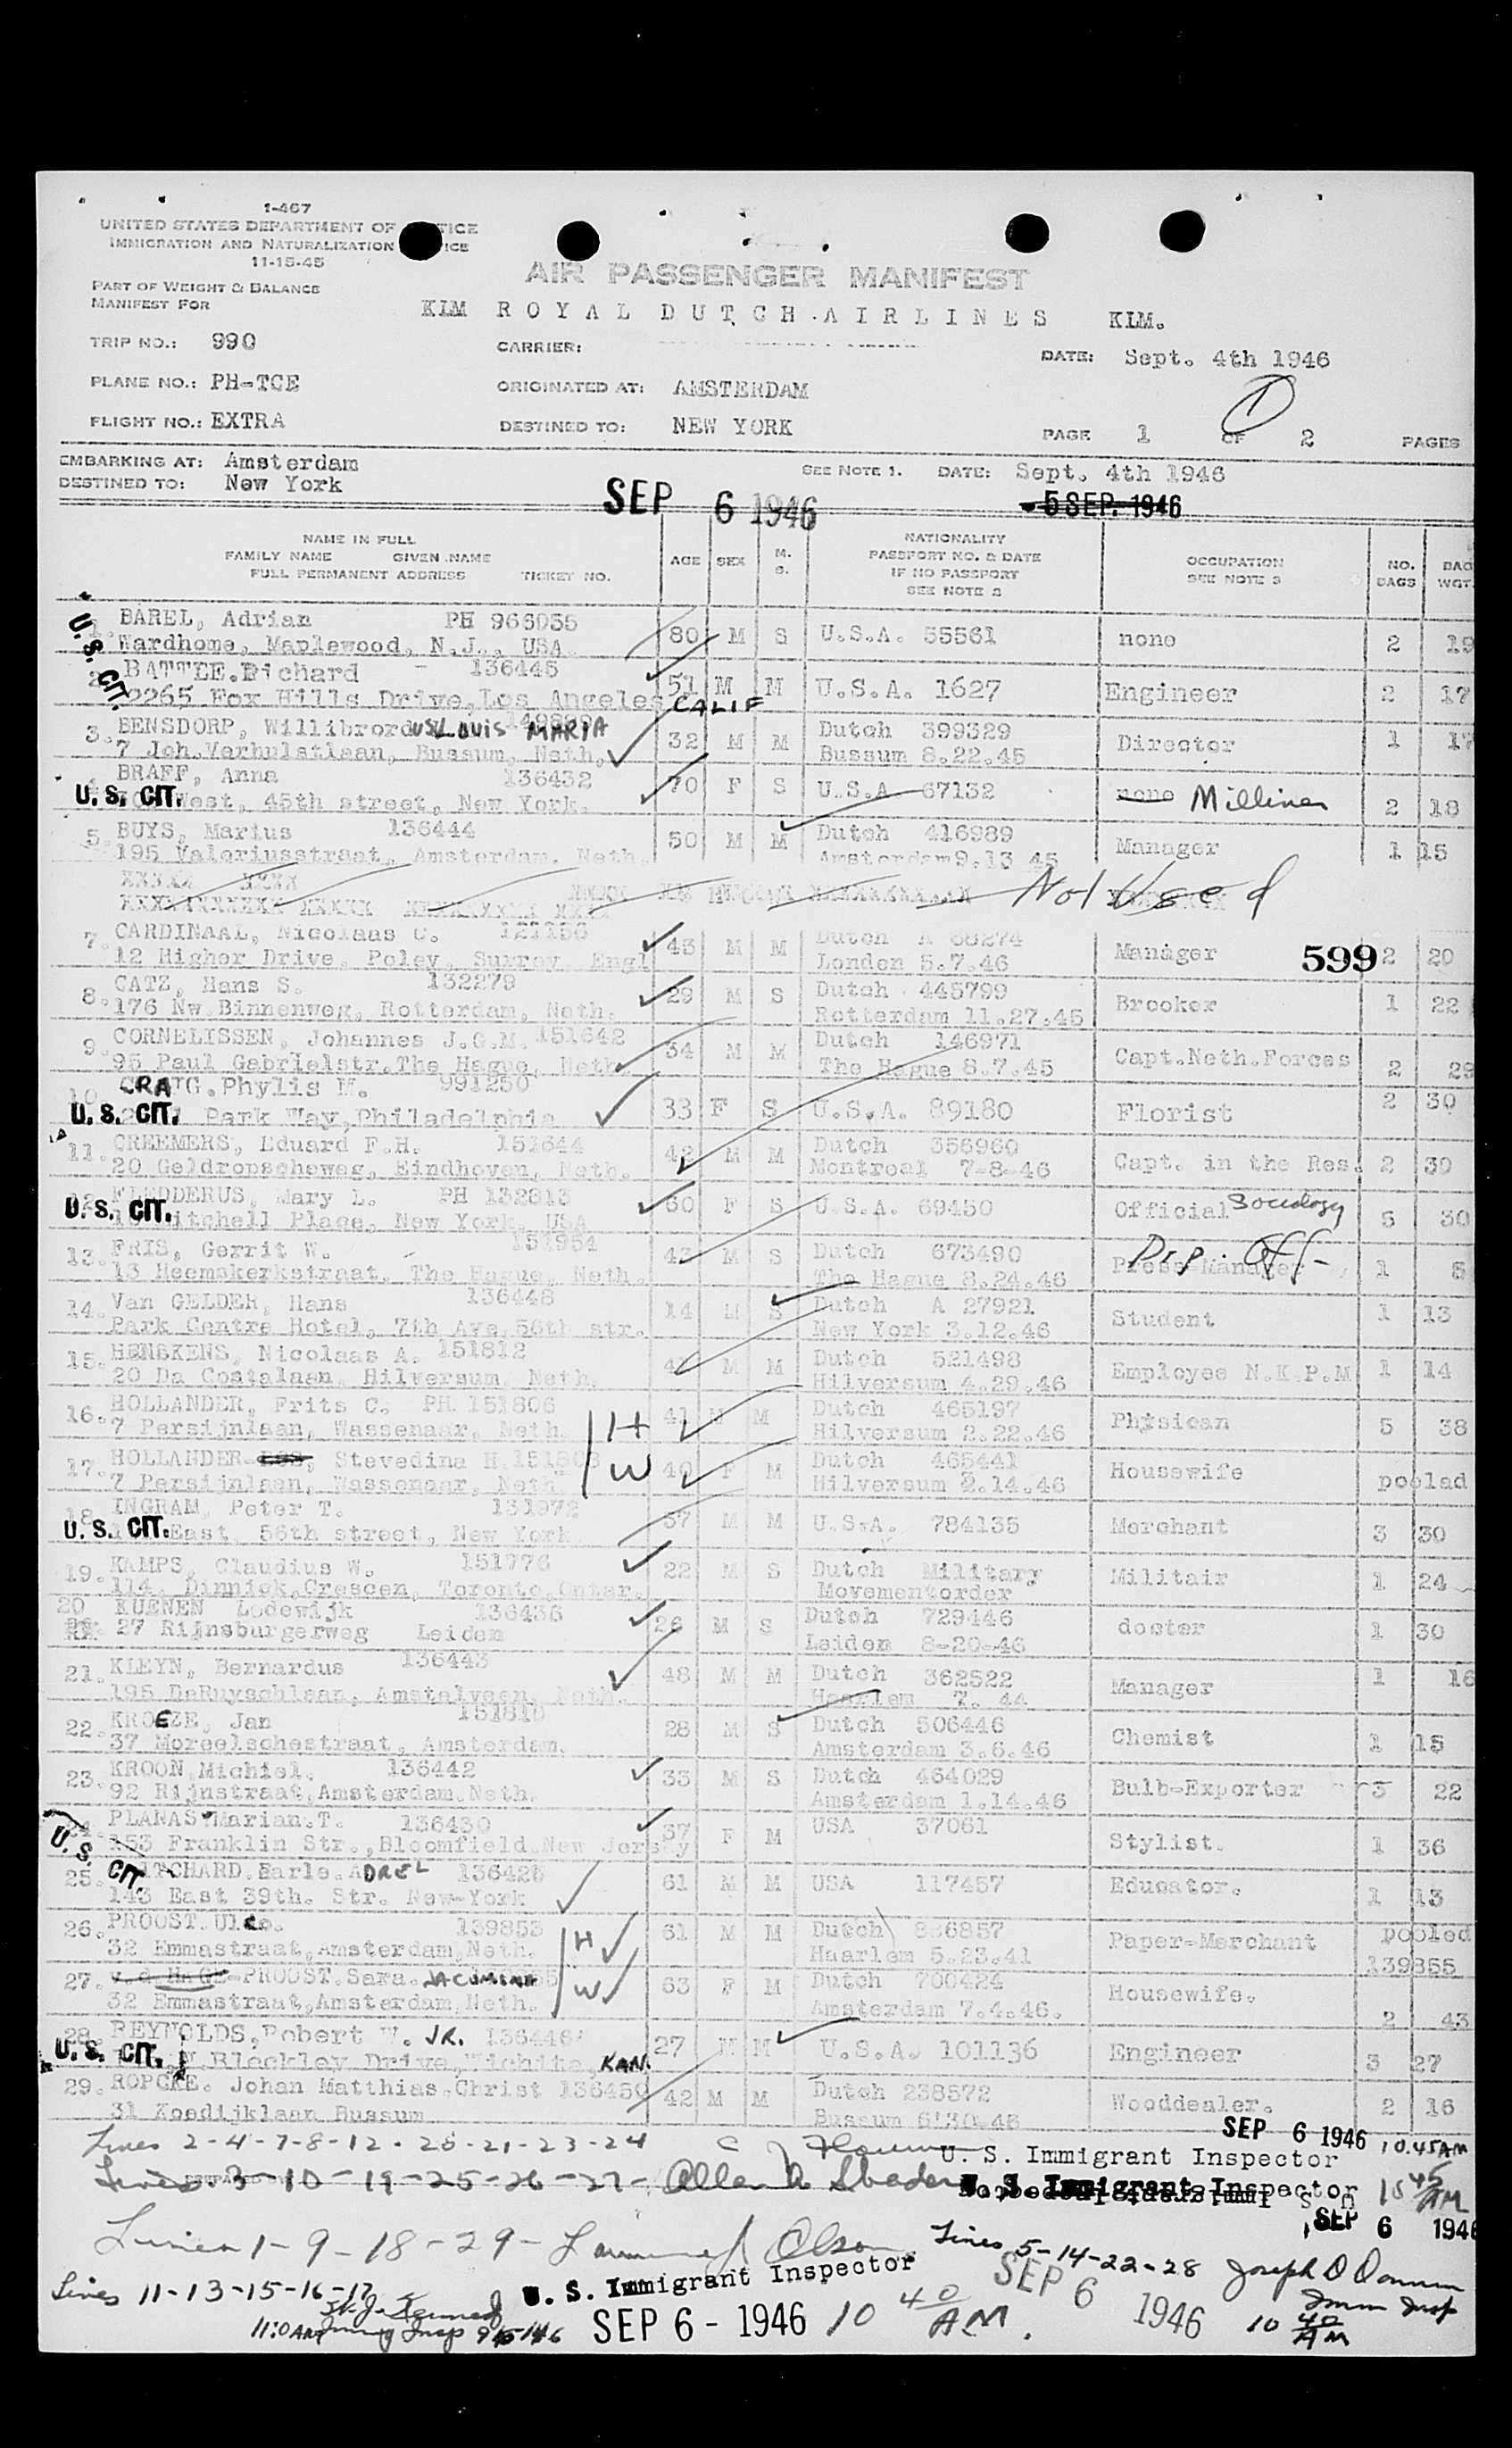 1-467
UNITED STATES DEPARTMENT OF
IMMIGRATION AND NATURALIZATION
11-15-45
PART OF WEIGHT & BALANCE
MANIFEST FOR
AIR PASSENGER MANIFEST
KLM ROYAL DUTCH AIRLINES KLM.
TRIP NO.: 990
CARRIER:
DATE: Sept. 4th 1946
PLANE NO.: PH-TCE
ORIGINATED AT: AMSTERDAM
FLIGHT NO.: EXTRA
DESTINED TO: NEW YORK
PAGE 1 OF 2 PAGES
1
EMBARKING AT: Amsterdam
SEE NOTE 1. DATE: Sept. 4th 1946
DESTINED TO: New York
SEP 6 1946
5 SEP. 1946
NAME IN FULL
FAMILY NAME GIVEN NAME
FULL PERMANENT ADDRESS TICKET NO.
AGE SEX M. S.
NATIONALITY
PASSPORT NO. & DATE
IF NO PASSPORT
SEE NOTE 2
OCCUPATION
SEE NOTE 3
NO. BAGS
BAG WGT.
U.S. CIT.
1. BAREL, Adrian PH 966055 80 M S U.S.A. 55561 none 2 19
Wardhome, Maplewood, N.J., USA
2. BATTLE.Richard - 136445 51 M M U.S.A. 1627 Engineer 2 17
2265 Fox Hills Drive, Los Angeles CALIF
3. BENSDORP, Willibrordus LOUIS MARIA 32 M M Dutch 399329 Director 1 17
7 Joh.Verhulstlaan, Bussum, Neth. Bussum 8.22.45
BRAFF, Anna 136432 70 F S U.S.A. 67132 none Milliner 2 18
U.S. CIT. West, 45th street, New York.
5. BUYS, Marius 136444 50 M M Dutch 416989 Manager 1 15
195 Valeriusstraat, Amsterdam, Neth. Amsterdam 9.13 45
Not Used
7. CARDINAAL, Nicolaas C. 121156 43 M M Dutch A 68274 Manager 2 20
12 Higher Drive, Poley, Surrey Engl London 5.7.46
599
8. CATZ, Hans S. 132279 29 M S Dutch 445799 Brooker 1 22
176 Nw.Binnenweg, Rotterdam, Neth. Rotterdam 11.27.45
9. CORNELISSEN, Johannes J.G.M. 151642 34 M M Dutch 146971 Capt.Neth.Forces 2 29
95 Paul Gabrielstr.The Hague, Neth. The Hague 8.7.45
10. CRAIG.Phylis M. 991250 33 F S U.S.A. 89180 Florist 2 30
U.S. CIT. Park Way,Philadelphia
11. CREEMERS, Eduard F.H. 151644 42 M M Dutch 356960 Capt. in the Res. 2 30
20 Geldropscheweg, Eindhoven, Neth. Montreal 7-8-46
12. FLEDDERUS, Mary L. PH 132813 60 F S U.S.A. 69450 Official Sociology 5 30
U.S. CIT. Mitchell Place, New York, USA
13. FRIS, Gerrit W. 151954 43 M S Dutch 673490 Press-Manager Dip. Off- 1 8
13 Heemskerkstraat, The Hague, Neth. The Hague 8.24.46
14. Van GELDER, Hans 136448 14 M S Dutch A 27921 Student 1 13
Park Centre Hotel, 7th Ave,56th str. New York 3.12.46
15. HENSKENS, Nicolaas A. 151812 41 M M Dutch 521498 Employee N.K.P.M 1 14
20 Da Costalaan, Hilversum, Neth. Hilversum 4.29.46
16. HOLLANDER, Frits C. PH 151806 41 M M Dutch 465197 Phisican 5 38
7 Persijnlaan, Wassenaar, Neth. H Hilversum 2.22.46
17. HOLLANDER- Stevedina H. 40 F M Dutch 465441 Housewife poolad
7 Persijnlaan, Wassenaar, Neth. W Hilversum 2.14.46
18. INGRAM, Peter T. 131972 37 M M U.S.A. 784135 Merchant 3 30
U.S. CIT. East, 56th street, New York
19. KAMPS, Claudius W. 151776 22 M S Dutch Military Militair 1 24
114, Dinnick,Crescen, Toronto,Ontar. Movementorder
20 KUENEN Lodewijk 136436 26 M S Dutch 729446 docter 1 30
27 Rijnsburgerweg Leiden Leiden 8-20-46
21. KLEYN, Bernardus 136443 48 M M Dutch 362522 Manager 1 16
195 DeRuyschlaan, Amstelveen, Neth. Haarlem 7. 44
22. KROEZE, Jan 151810 28 M S Dutch 506446 Chemist 1 15
37 Moreelschestraat, Amsterdam. Amsterdam 3.6.46
23. KROON Michiel. 136442 33 M S Dutch 464029 Bulb-Exporter 3 22
92 Rijnstraat,Amsterdam.Neth. Amsterdam 1.14.46
24. PLANAS Marian.T. 136430 37 F M USA 37061 Stylist. 1 36
U.S. CIT. 153 Franklin Str.,Bloomfield.New Jersey
25. PITCHARD.Earle.ADREL 136428 61 M M USA 117457 Educator. 1 13
143 East 39th. Str. New-York
26. PROOST. 139853 61 M M Dutch 886857 Paper-Merchant pooled
32 Emmastraat,Amsterdam,Neth. H Haarlem 5.23.41 139855
27. v.d.HAGE-PROOST.Sara. JACOMINA 63 F M Dutch 700424 Housewife.
32 Emmastraat,Amsterdam,Neth. W Amsterdam 7.4.46. 2 43
28. REYNOLDS,Robert W. JR. 136446 27 M M U.S.A. 101136 Engineer 3 27
U.S. CIT. N.Bleckley Drive,Wichita, KAN.
29. ROPCKE. Johan Matthias.Christ 136450 42 M M Dutch 238572 Wooddealer. 2 16
31 Koedijklaan Bussum Bussum 6.30.46
SEP 6 1946 10.45AM
Lines 2-4-7-8-12-20-21-23-24
U. S. Immigrant Inspector
Lines 3-10-19-25-26-27-
U. S. Immigrant Inspector
SEP 6 1946
Lines 1-9-18-29- Olson
U. S. Immigrant Inspector
SEP 6 - 1946 10 40 AM.
Lines 5-14-22-28 Joseph D
Imm Insp
SEP 6 1946 10 40 AM
Lines 11-13-15-16-17
11:0 AM Immig Insp